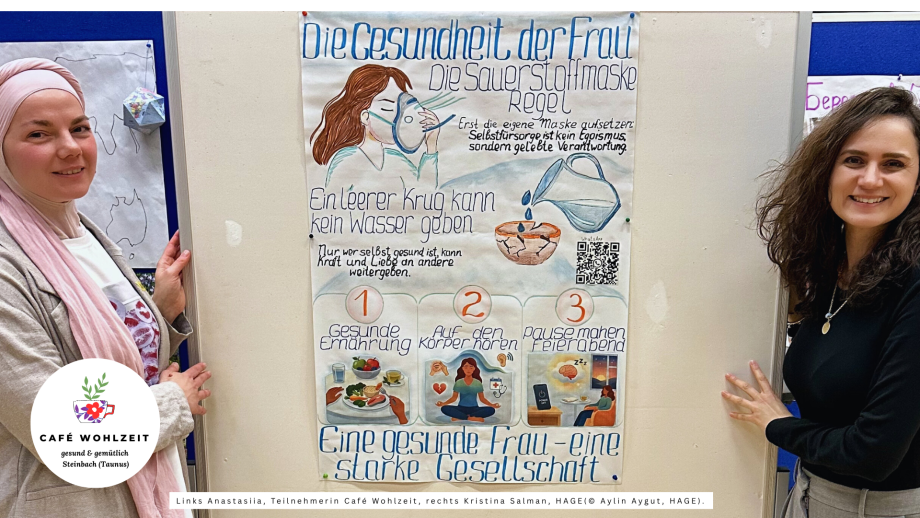 Die Gesundheit der Frau
Die Sauerstoffmaske
Regel
Erst die eigene Maske aufsetzen:
Selbstfürsorge ist kein Egoismus,
sondern gelebte Verantwortung.
Ein leerer Krug kann
kein Wasser geben
Nur wer selbst gesund ist, kann
Kraft und Liebe an andere
weitergeben.
1
Gesunde
Ernährung
2
Auf den
Körper hören
3
Pause mahen
Feierabend
zzz
Eine gesunde Frau - eine
starke Gesellschaft
CAFÉ WOHLZEIT
gesund & gemütlich
Steinbach (Taunus)
Links Anastasiia, Teilnehmerin Café Wohlzeit, rechts Kristina Salman, HAGE(© Aylin Aygut, HAGE).